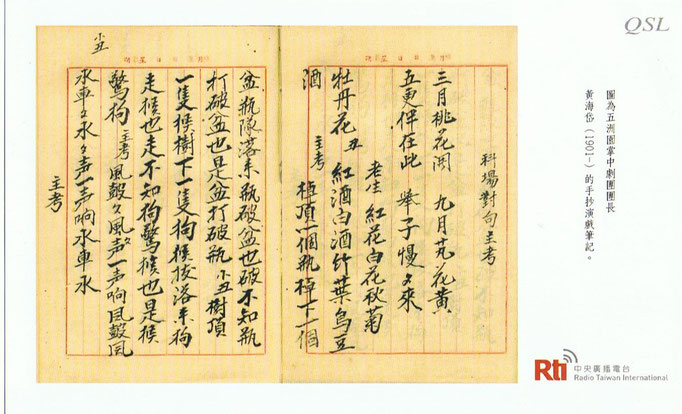 QSL
圖為五洲園掌中劇團團長
黃海岱（1901-）的手抄演戲筆記。
科場對句主考
三月桃花開 九月芃花黃
五更伴在此 舉子慢々來
老生 紅花白花秋菊
牡丹花 丑 紅酒白酒竹葉烏豆
酒 主考 棹頂一個瓶棹下一個
盆瓶隊落來瓶破盆也破不知瓶
打破盆也是盆打破瓶 小丑 樹頂
一隻猴樹下一隻狗猴拔落來狗
走猴也走不知狗驚猴也是猴
驚狗 主考 風鼓々風々声一声响風鼓風
小丑
水車々水々声一声响水車水
主考
Rti 中央廣播電台
Radio Taiwan International